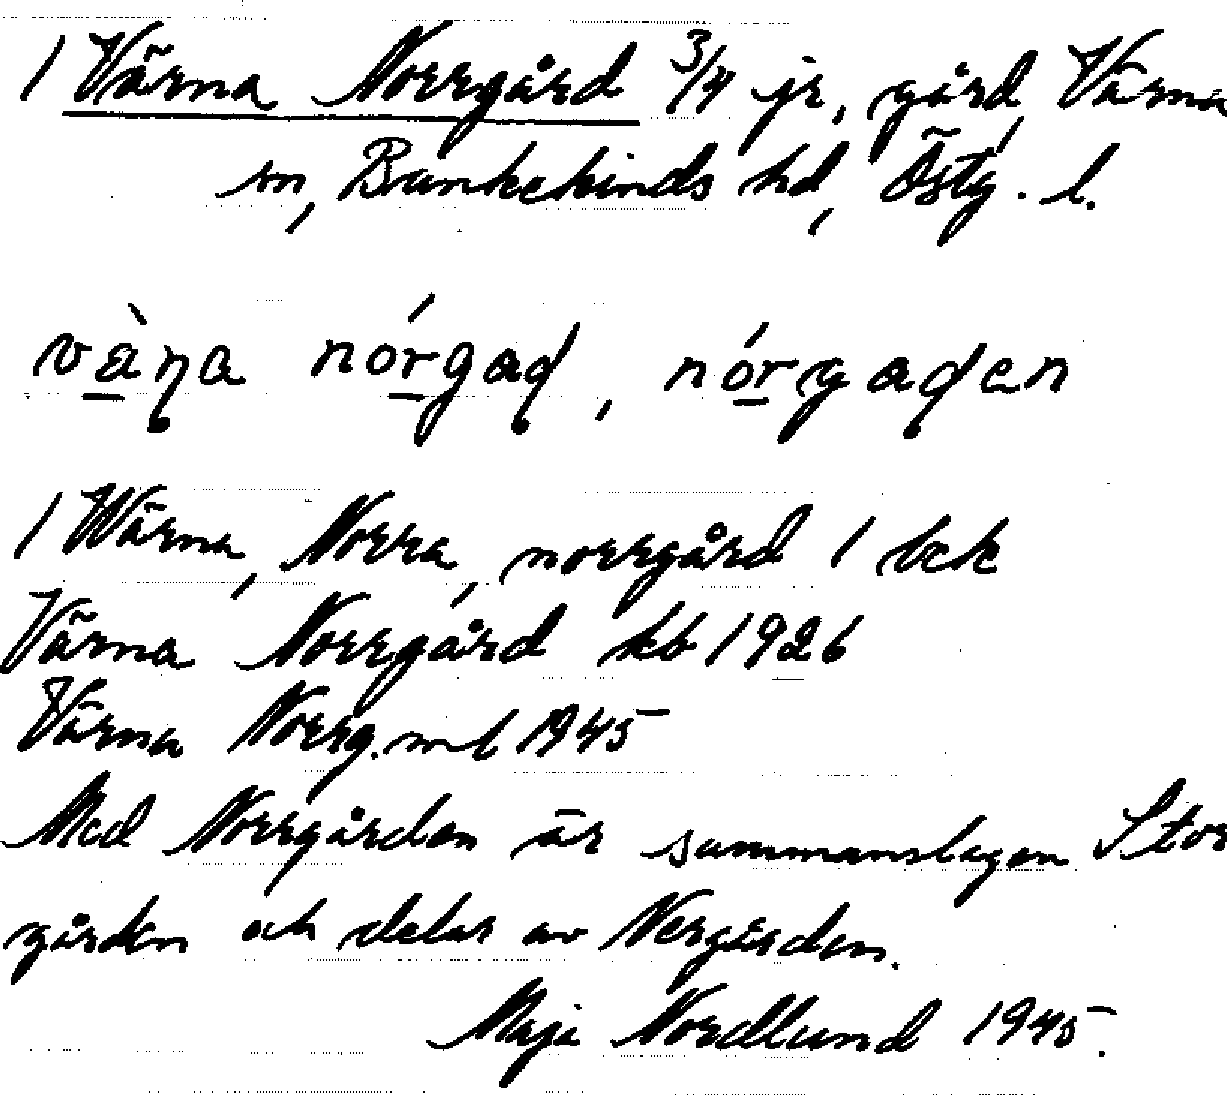 / Värna Norrgård 3/4 jr, gård, Värna
sn, Bankekinds hd, Östg. l.
vàṇa nórgaḍ, nórgaḍen
/ Wärna, Norra, norrgård / bek
Värna Norrgård kb 1926
Värna Norrg. ml 1945
Med Norrgården är sammanslagen Stor
gården och delar av Nergården.
Maja Nordlund 1945.